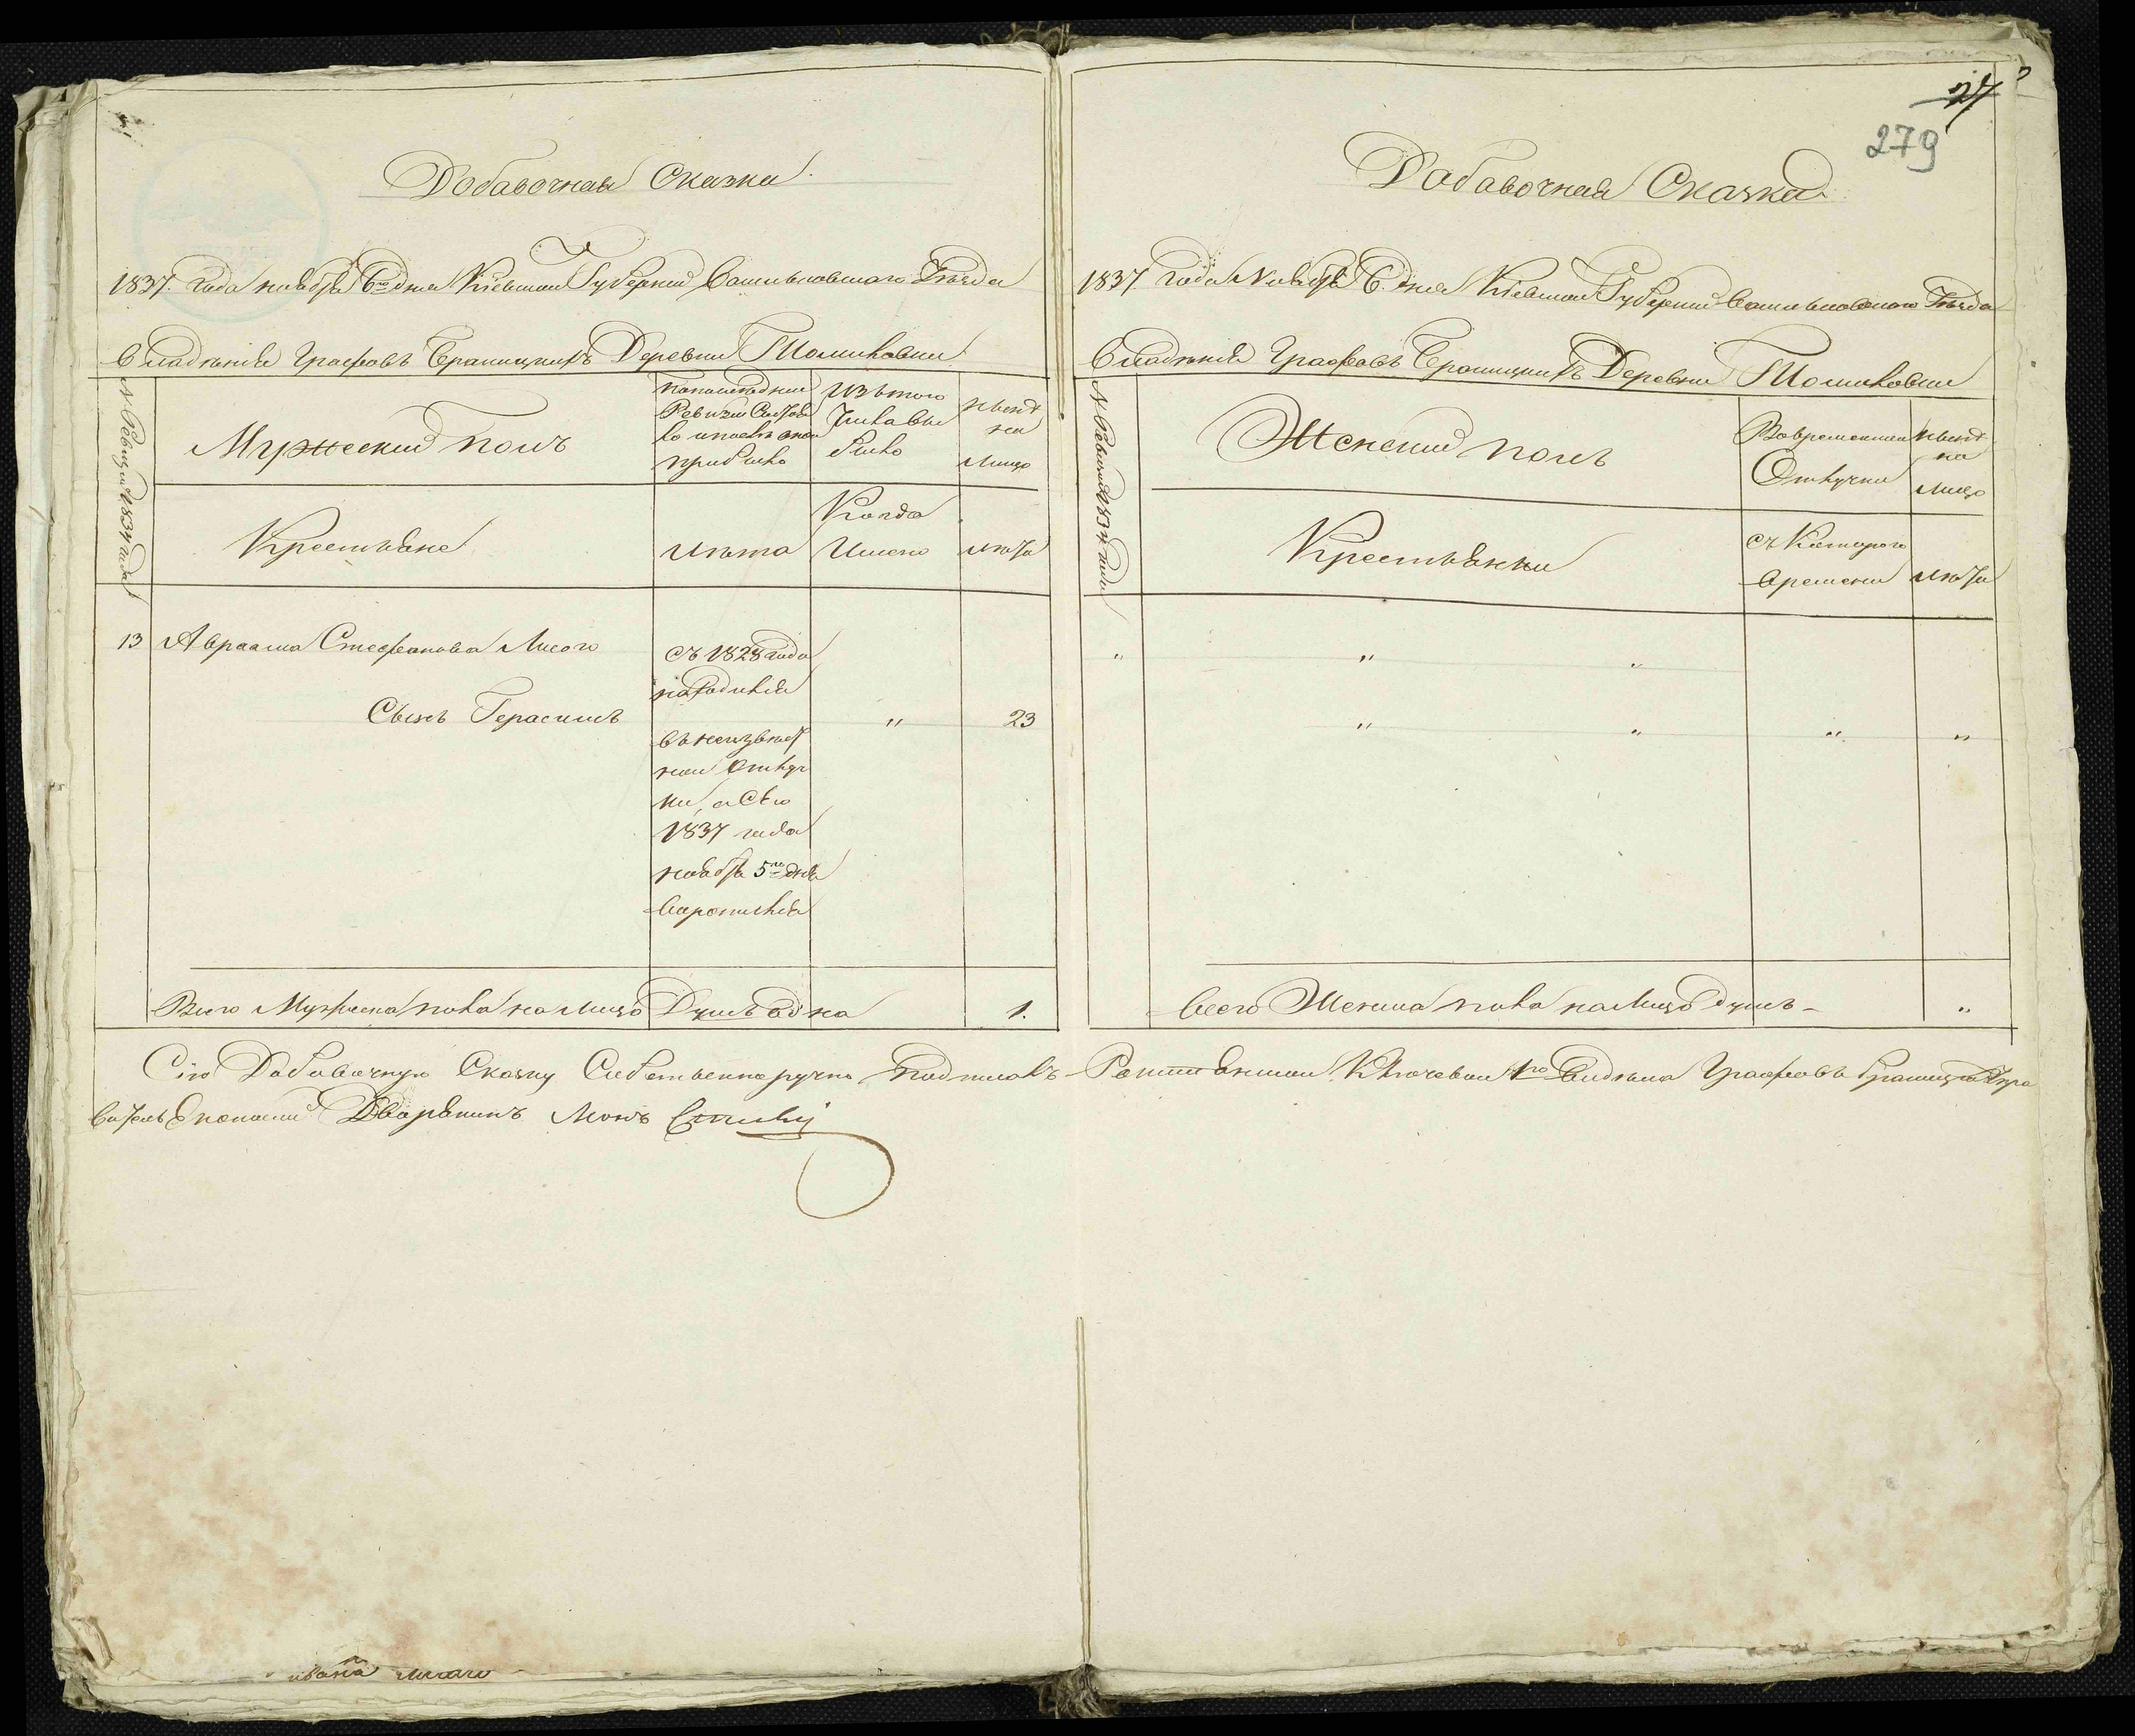 Добавочная Сказка
1837. года ноября 6го дня Кіевской Губерніи Васильковскаго Уѣзда
Владѣнія Графовъ Браницкихъ Деревни Томиловки
№ Ревизіи 1834 года
Мужескій полъ
По последней
Ревизіи Состоя
ло и после оной
прибыло
Изъ того
Числа вы
было
Ныне
на
Лицо
Крестьяне
Лѣта
Когда
Имено
Лѣта
13 Авраама Стефанова Лисого
Сынъ Герасимъ
съ 1828 года
находился
въ неизвест
ной Отлуч
ки, а Сего
1837 года
ноября 5го дня
Воротился
" 23
Всего Мужеска пола на лицо Душъ одна 1.
27
279
Добавочная Сказка
1837 года Ноября 6. дня Кіевской Губерніи Васильковскаго Уѣзда
Владѣнія Графовъ Браницкихъ Деревни Томиловки
№ Ревизіи 1834 года
Женскій полъ
Во временной
Отлучки
Ныне
на
лицо
Крестьянки
съ Которого
времени
Лѣта
" " "
" " " "
Всего Женска пола на Лицо душъ - "
Сію Добавочную Сказку Собственноручно Подписалъ Ракитянской Ключевой 1го Отдѣла Графовъ Браницкихъ Упра
витель Економіи Дворянинъ
ивана лисаго